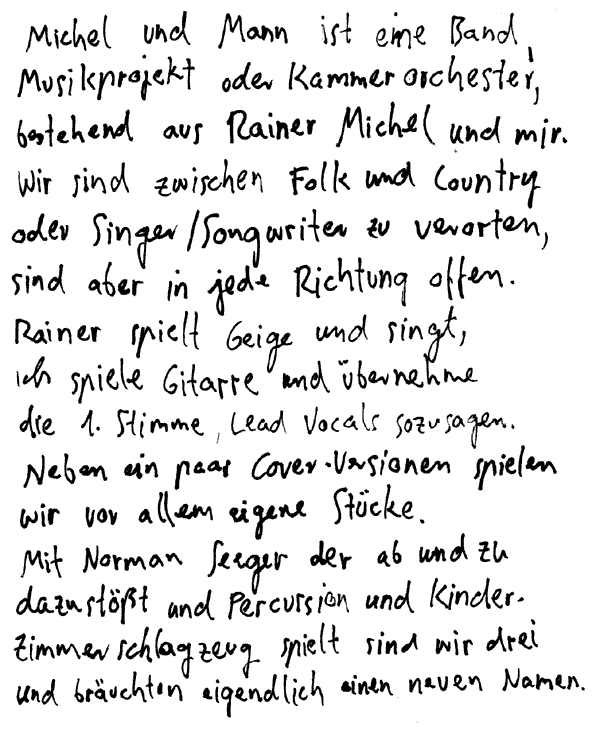 Michel und Mann ist eine Band,
Musikprojekt oder Kammerorchester,
bestehend aus Rainer Michel und mir.
Wir sind zwischen Folk und Country
oder Singer/Songwriter zu verorten,
sind aber in jede Richtung offen.
Rainer spielt Geige und singt,
ich spiele Gitarre und übernehme
die 1. Stimme, Lead Vocals sozusagen.
Neben ein paar Cover-Versionen spielen
wir vor allem eigene Stücke.
Mit Norman Seeger der ab und zu
dazustößt und Percussion und Kinder-
zimmerschlagzeug spielt sind wir drei
und bräuchten eigendlich einen neuen Namen.